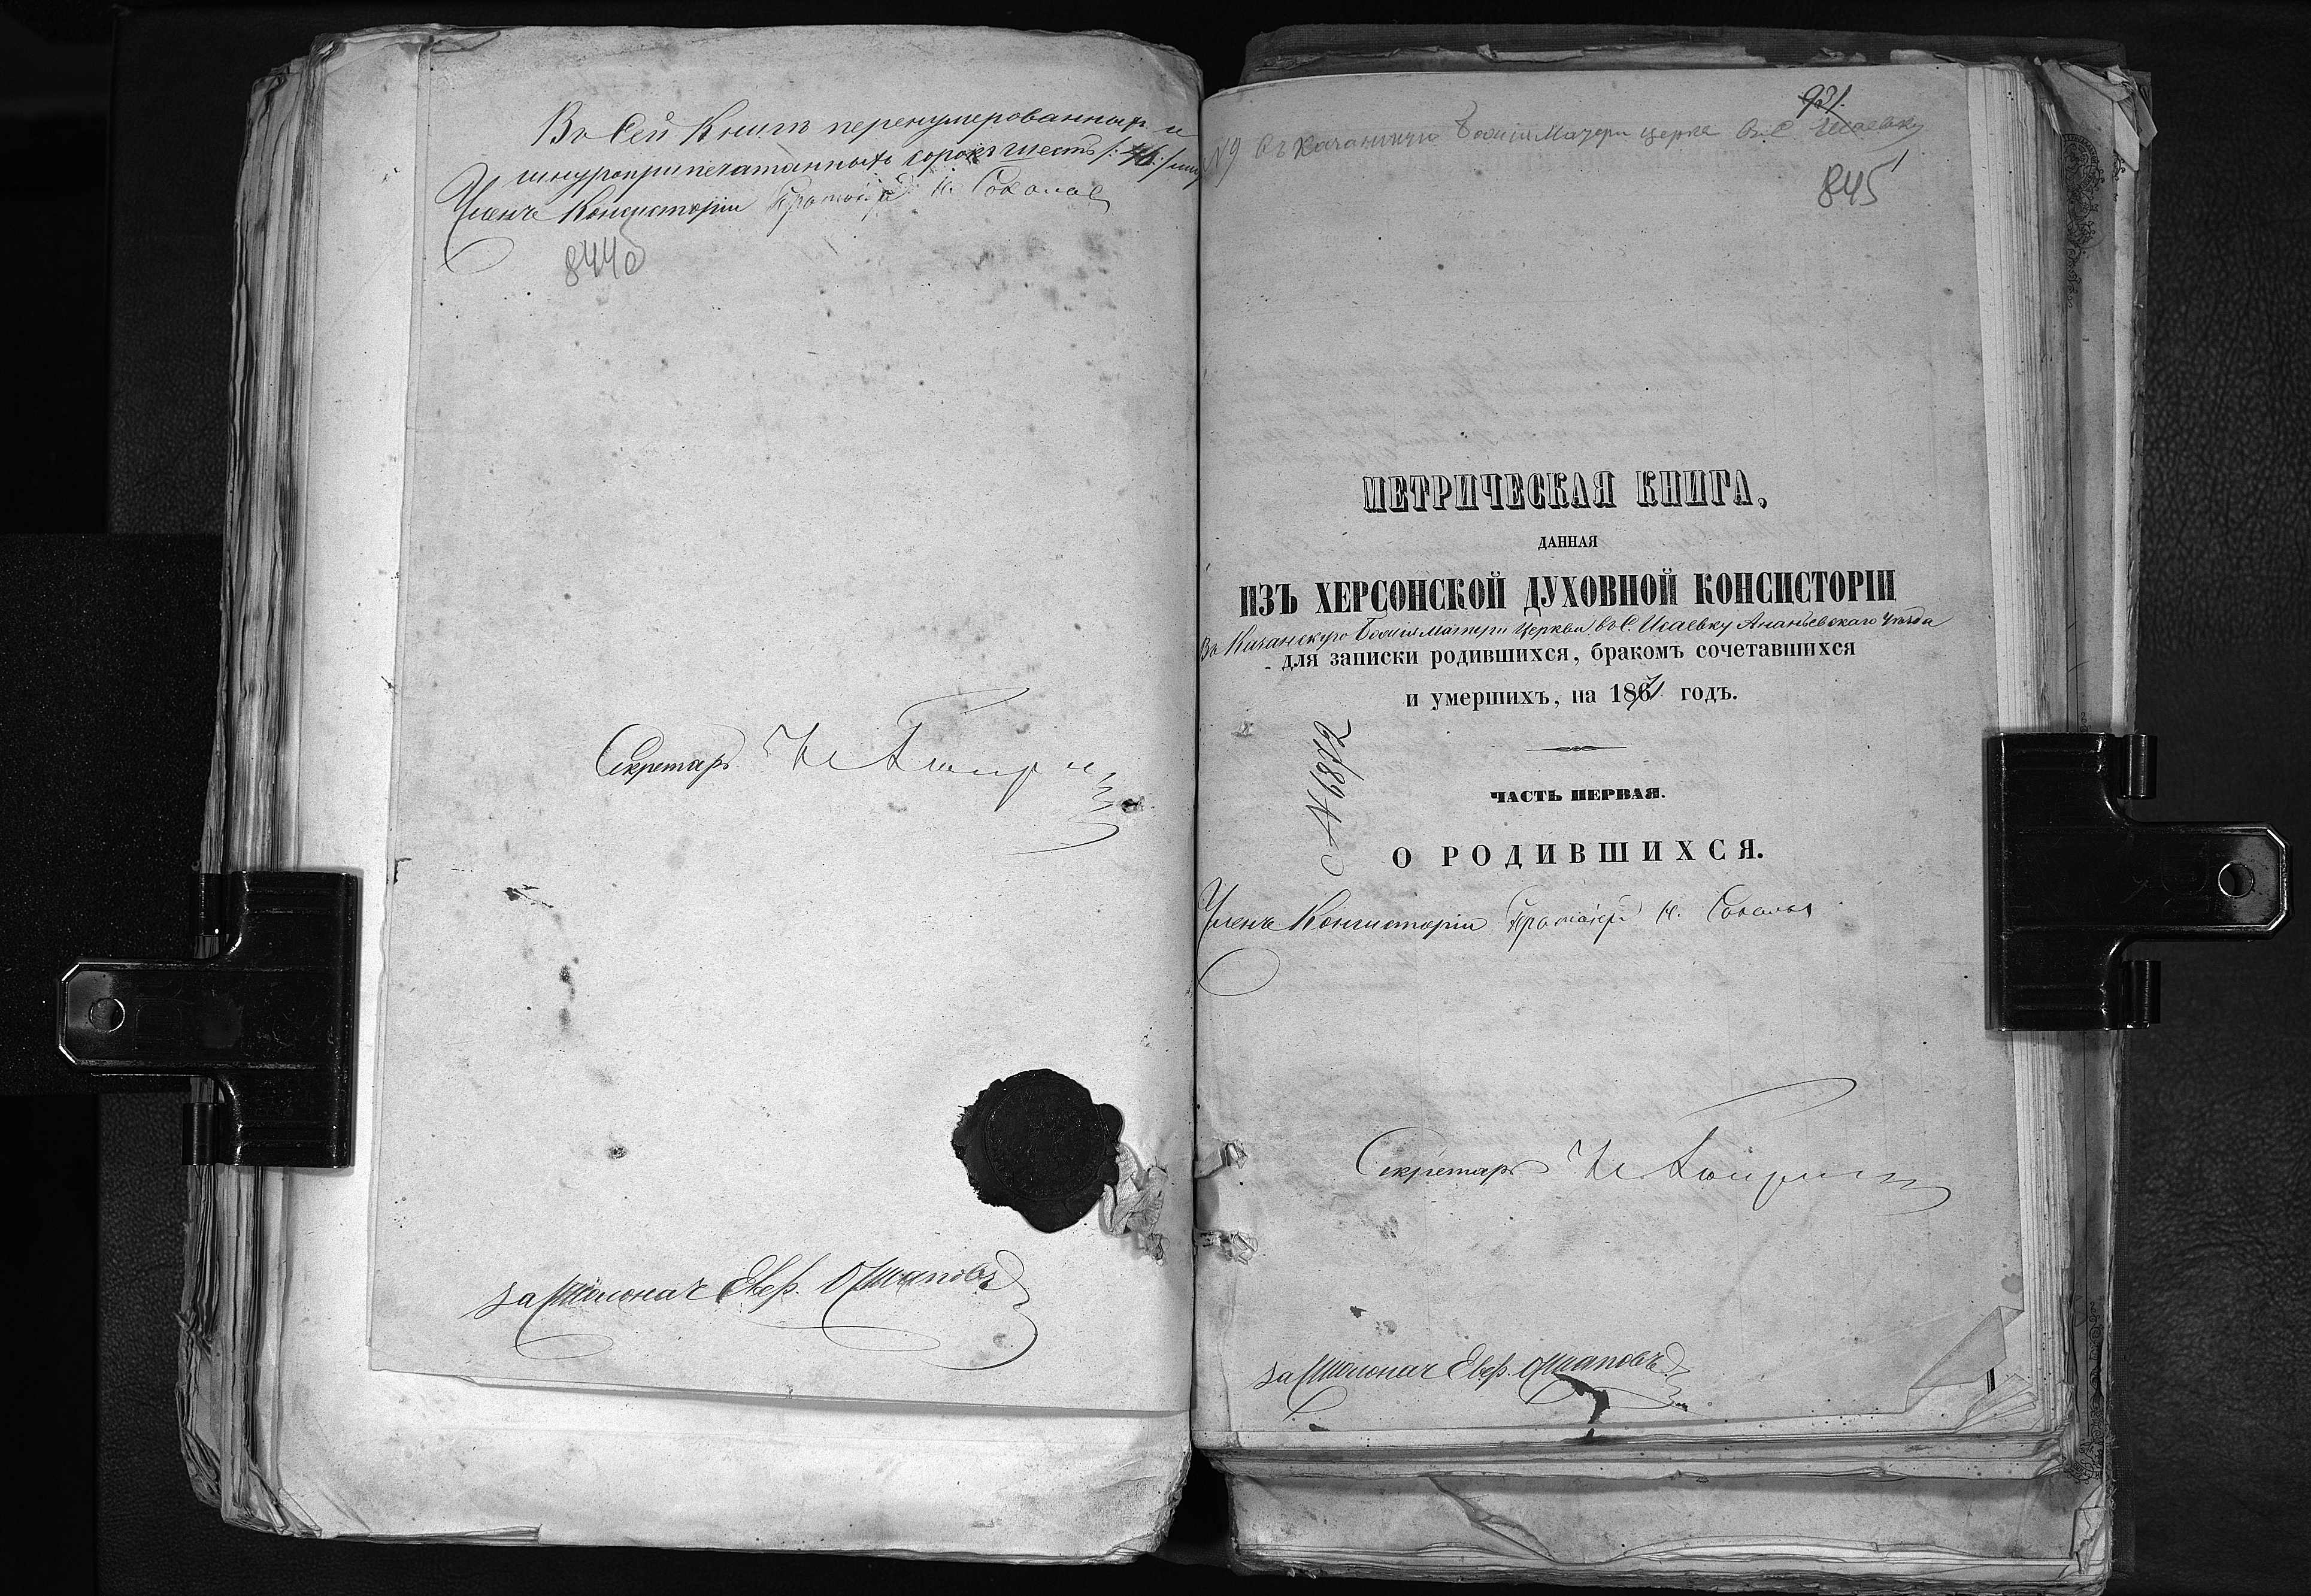 Въ Сей Книгѣ перенумерованныхъ и
шнуроприпечатанныхъ сорокъ шесть /:46:/
Членъ Консисторіи Протоіерей Н. Соколовъ
844
Секретарь И.
За Столонач. Евф.
931.
№9 Въ Качанскую Божія Матери церкв. въ С. Исаевку
845
МЕТРИЧЕСКАЯ КНИГА,
ДАННАЯ
ИЗЪ ХЕРСОНСКОЙ ДУХОВНОЙ КОНСИСТОРІИ
Въ Качанскую Божія Матери Церковь въ С. Исаевку Ананьевскаго Уѣзда
для записки родившихся, бракомъ сочетавшихся
и умершихъ, на 1871 годъ.
№ 6872
ЧАСТЬ ПЕРВАЯ.
О РОДИВШИХСЯ.
Членъ Консисторіи Протоіерей Н. Соколовъ
Секретарь И.
За Столонач. Евф.